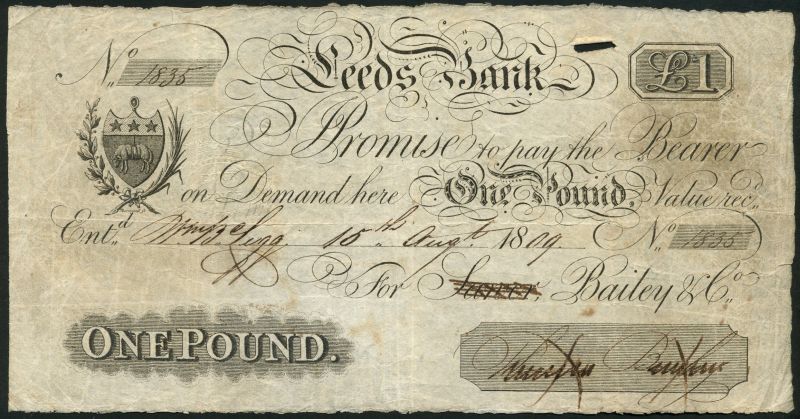 Leeds Bank
No. 1835 £1
Promise to pay the Bearer
on Demand here One Pound, Value recd.
Entd. 15th Augt. 1809 No. 1835
For Bailey & Co.
ONE POUND.